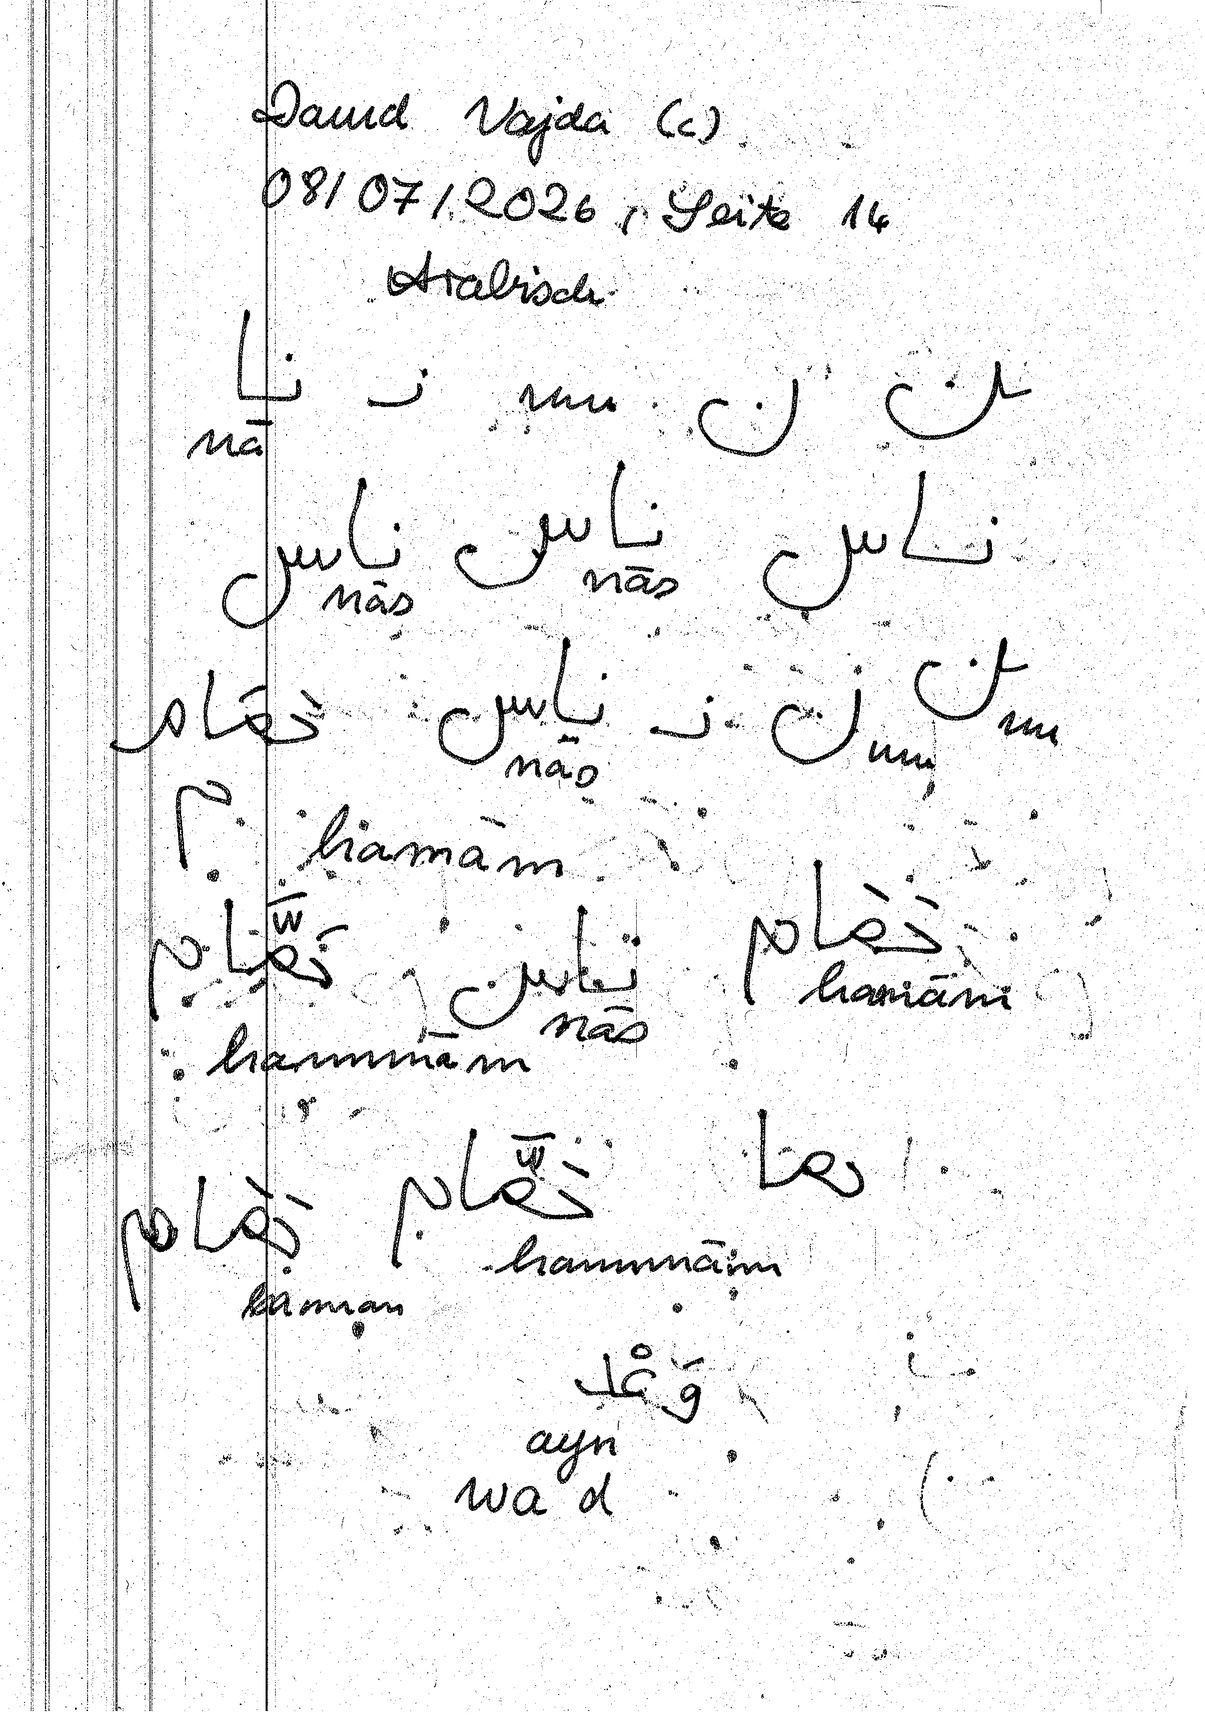 David Vajda (c)
08/07/2026, Seite 14
Arabisch
نا ن nun ن ن
nā
ناس ناس ناس
nās nās
حَمَام ناس ن ن ن
nās nun nun
م hamām
حَمَّام ناس حَمَام
hamām
nās
hammām
حَمَام حَمَّام
hammām
وَعْد
ayn
wa d